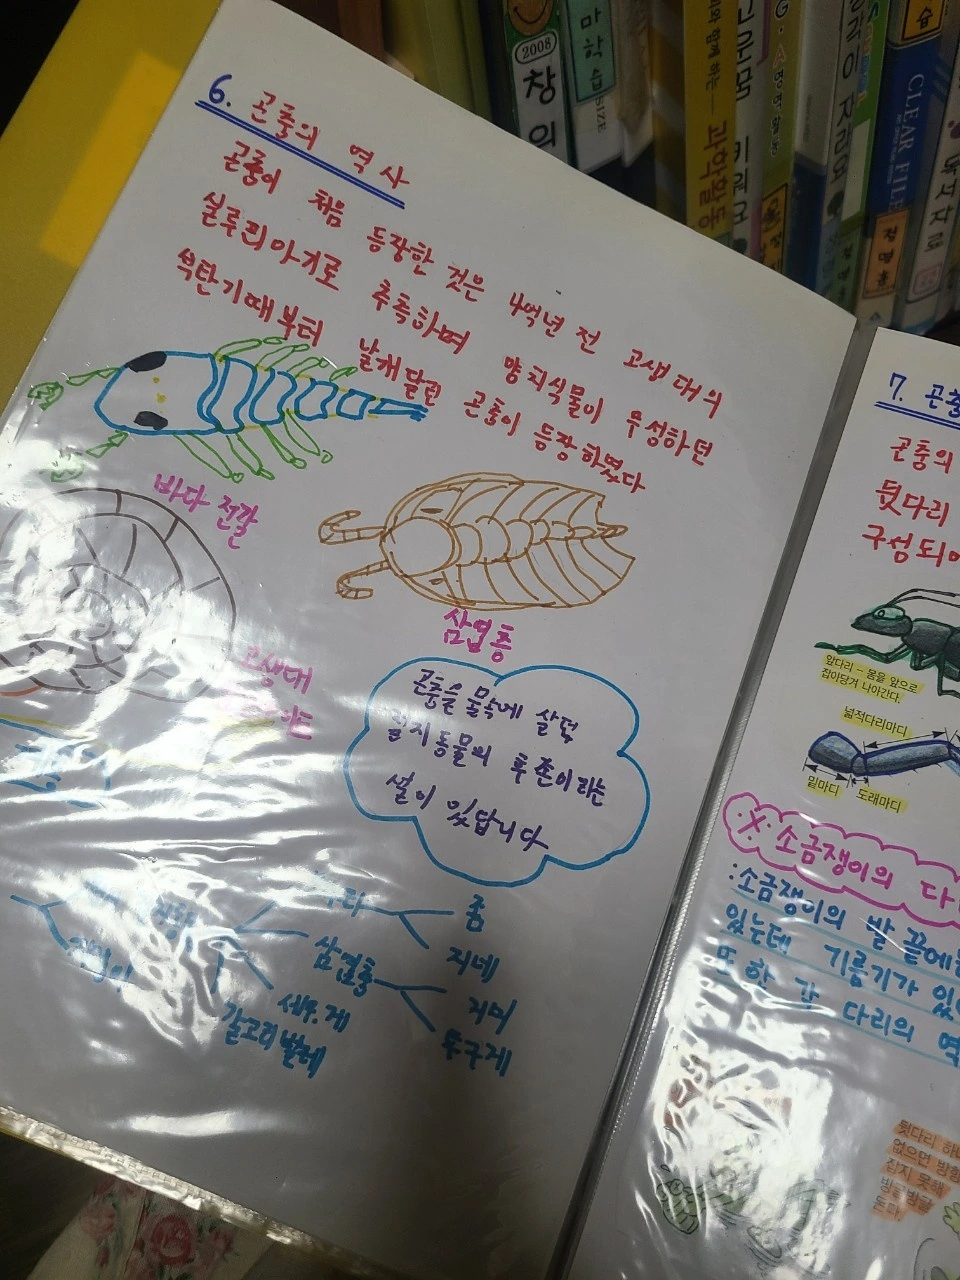 6. 곤충의 역사
곤충이 처음 등장한 것은 4억년 전 고생대의
실루리아기로 추측하며 양치식물이 무성하던
석탄기때부터 날개달린 곤충이 등장하였다
바다 전갈
삼엽충
고생대
곤충을 물속에 살던
절지동물의 후존이라는
설이 있답니다
좀
지네
삼엽충
거미
세우.게
투구게
갈고리벌레
7. 곤충
곤충의
뒷다리
구성되어
앞다리 – 몸을 앞으로
잡아당겨 나아간다.
넓적다리마디
밑마디
도래마디
※ 소금쟁이의 다
:소금쟁이의 발 끝에는
있는데 기름기가 있
또 한 각 다리의 역
뒷다리 하나
없으면 방향
잡지 못해
빙글빙글
돈다.
2008
창의
마학습
SIZE
과학활동
영역활동
CLEAR FILE